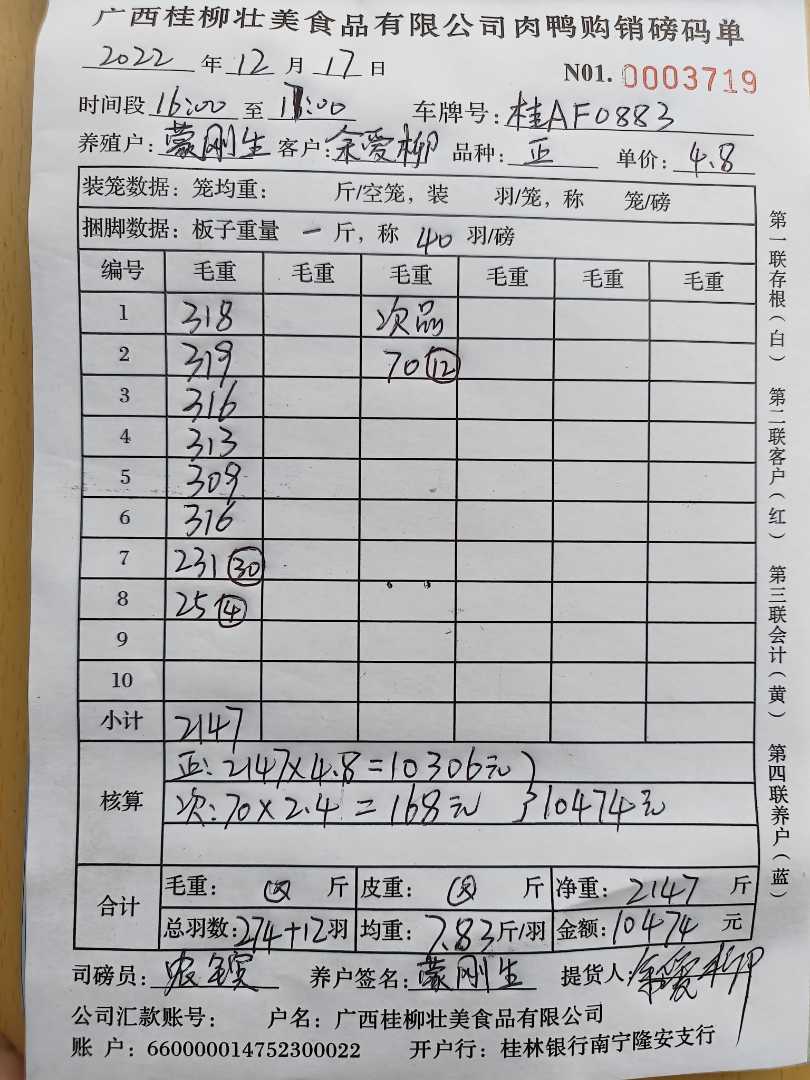 广西桂柳壮美食品有限公司肉鸭购销磅码单
2022 年 12 月 17 日 N01. 0003719
时间段 16:00 至 17:00 车牌号: 桂AF0883
养殖户: 蒙刚生 客户: 余爱柳 品种: 正 单价: 4.8
装笼数据: 笼均重: 斤/空笼, 装 羽/笼, 称 笼/磅
捆脚数据: 板子重量 一 斤, 称 40 羽/磅
编号 毛重 毛重 毛重 毛重 毛重 毛重
1 318 次品
2 319 70 12
3 316
4 313
5 309
6 316
7 231 30
8 25 4
9
10
小计 2147
核算 正: 2147×4.8=10306元
次: 70×2.4=168元 } 10474元
合计 毛重: 斤 皮重: 斤 净重: 2147 斤
总羽数: 274+12 羽 均重: 7.83 斤/羽 金额: 10474 元
司磅员: 养户签名: 蒙刚生 提货人: 余爱柳
公司汇款账号: 户名: 广西桂柳壮美食品有限公司
账 户: 660000014752300022 开户行: 桂林银行南宁隆安支行
第一联存根(白) 第二联客户(红) 第三联会计(黄) 第四联养户(蓝)